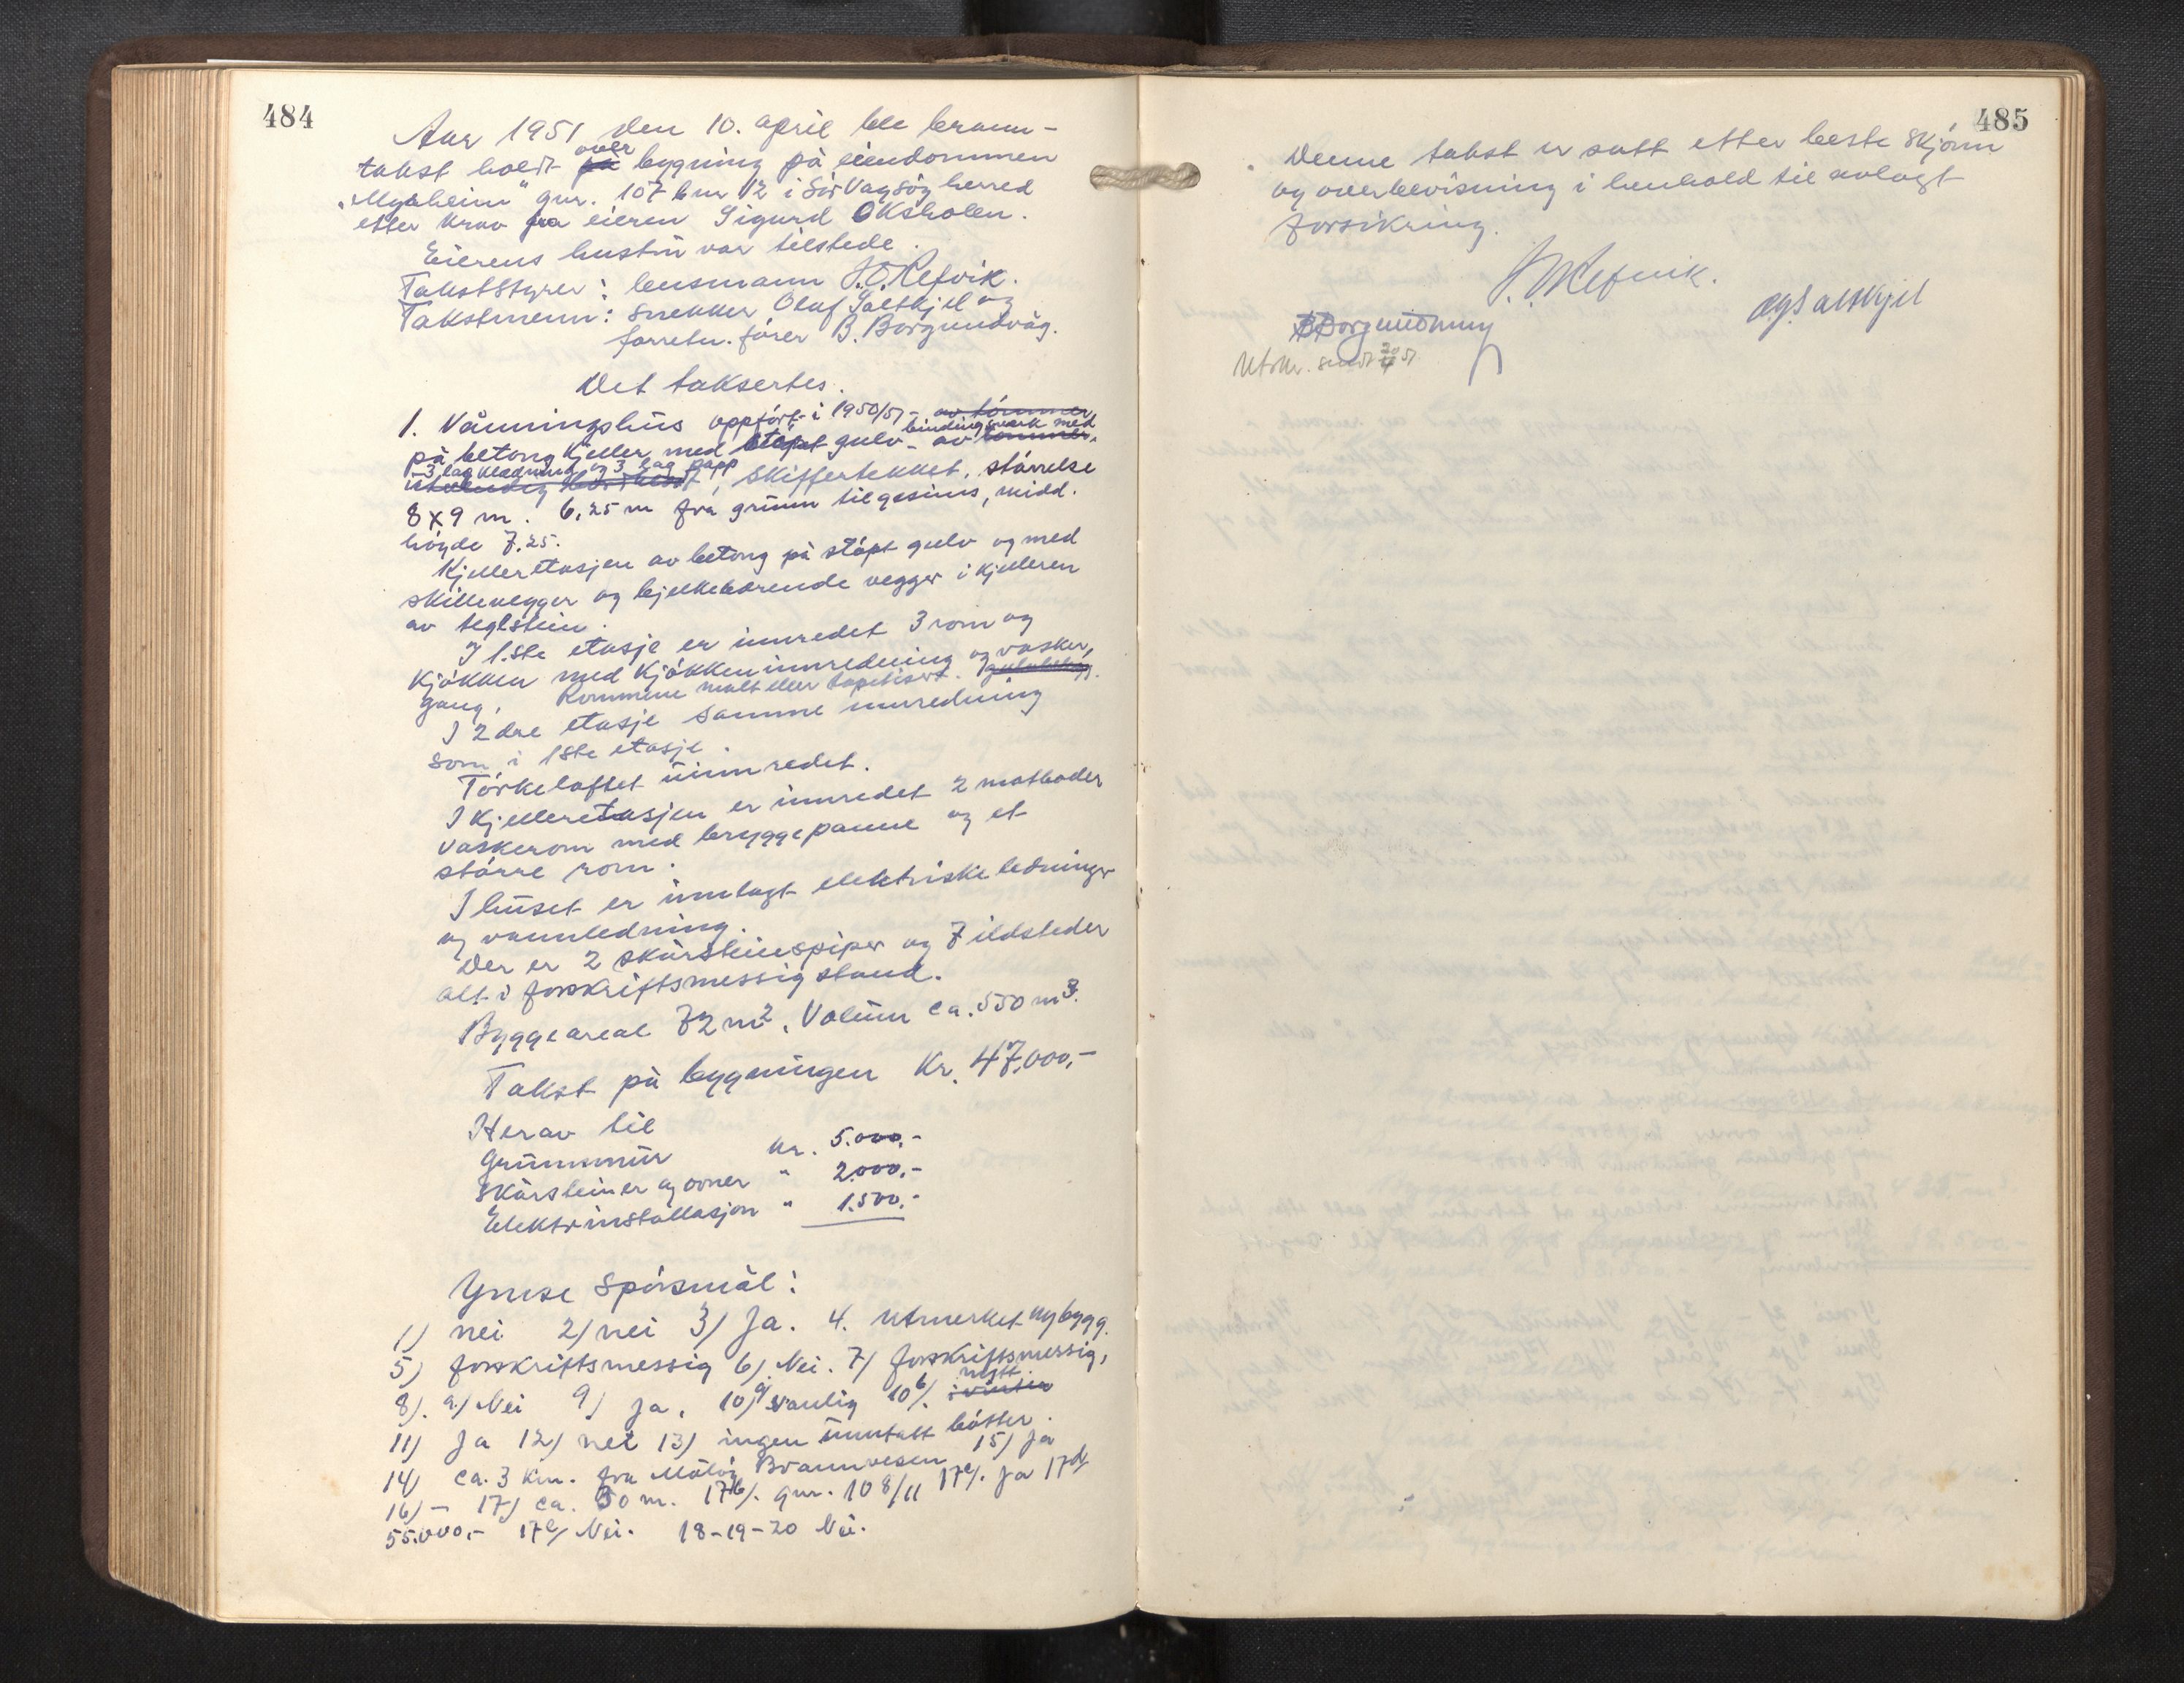 484
Aar 1951 den 10. april ble brann-
takst holdt på over bygning på eiendommen
"Myrheim" gnr. 107 bnr 12 i Sör Vagsöy herred
etter krav fra eieren Sigurd Oksholen.
Eierens hustru var tilstede.
Takststyrer: lensmann J.O. Refvik.
Takstmenn: snekker Oluf Saltkjel og
forretn. förer B. Borgundvåg.
Det taksertes.
1. Våningshus oppfört i 1950/51 - av tömmer,
bindingsverk med
på betong kjeller med stöpt gulv - av tömmer,
3 lag kledning og 3 lag papp
utvendig bordkledt, skiffertekket, störrelse
8 x 9 m. 6,25 m fra grunn til gesims, midd.
höyde 7.25.
Kjelleretasjen av betong på stöpt gulv og med
skillevegger og bjelkebærende vegger i kjelleren
av teglstein.
I 1.ste etasje er innredet 3 rom og
kjökken med kjökkeninnredning og vasker,
gang, Rommene malt eller tapetisert. gulvbelegg.
I 2dre etasje samme innredning
som i 1ste etasje.
Törkeloftet uinnredet.
I kjelleretasjen er innredet 2 matboder
vaskerom med bryggepanne og et
större rom.
I huset er innlagt elektriske ledninger
og vannledning.
Der er 2 skorsteinspiper og 7 ildsteder
alt i forskriftsmessig stand.
Byggeareal 72 m2. Volum ca. 550 m3.
Takst på bygningen Kr. 47.000,-
Herav til
Grunnmur kr. 5.000,-
Skorsteiner og ovner " 2.000,-
Elektr installasjon " 1.500,-
Ymse spörsmål:
1) nei 2) nei 3) Ja. 4. Utmerket nybygg.
5) forskriftsmessig 6) Nei. 7) forskriftsmessig,
8). a.) Nei 9) Ja, 10) a) vanlig 10 b). nytt i vinter
11) Ja 12) nei 13) ingen unntatt bötter.
14) ca. 3 km. fra Målöy Brannvesen 15) Ja
16) - 17) ca. 30 m. 17 b). gnr. 108/11 17 c). Ja 17 d)
55.000,- 17 e) Nei. 18-19-20 Nei.
485
Denne takst er satt etter beste skjönn
og overbevisning i henhold til avlagt
forsikring.
J. O. Refvik.
O. Saltskjel
B Borgundvaag
Utskr. sendt 20/4 51